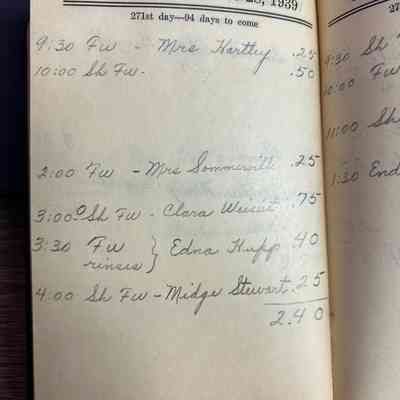 28, 1939
271st day—94 days to come
9:30 Fw - Mrs Hartley .25
10:00 Sh Fw. .50
2:00 Fw - Mrs Sommerville .25
3:00 Sh Fw - Clara 75
3:30 Fw } Edna Hupp 40
rinses
4:00 Sh Fw - Midge Stewart .25
2.40
27
9:30 Sh
10:00 Fw
11:00 Sh
1:30 End